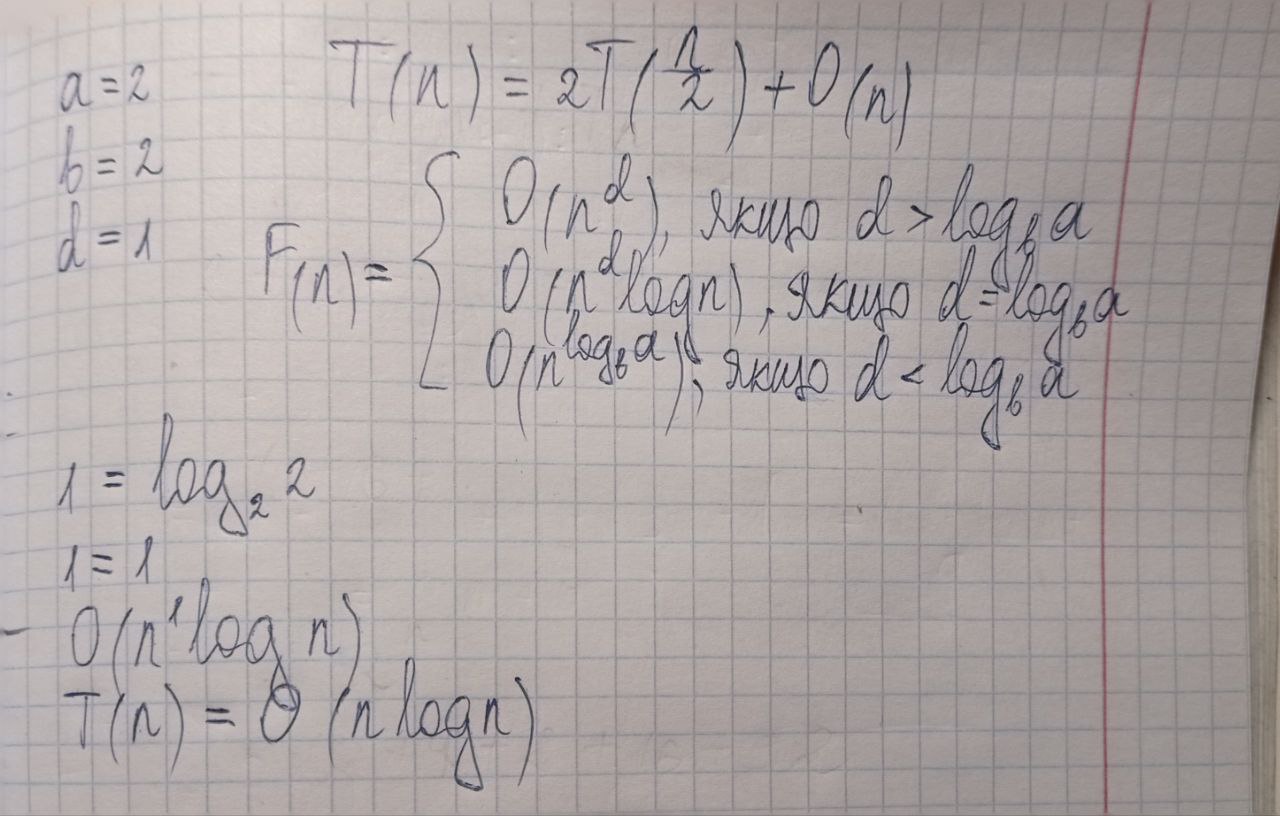 a = 2
b = 2
d = 1
T(n) = 2T(n/2) + O(n)
F(n) = { O(n^d), якщо d > log_b a
O(n^d log n), якщо d = log_b a
O(n^{log_b a}), якщо d < log_b a
1 = log_2 2
1 = 1
O(n^1 log n)
T(n) = O(n log n)